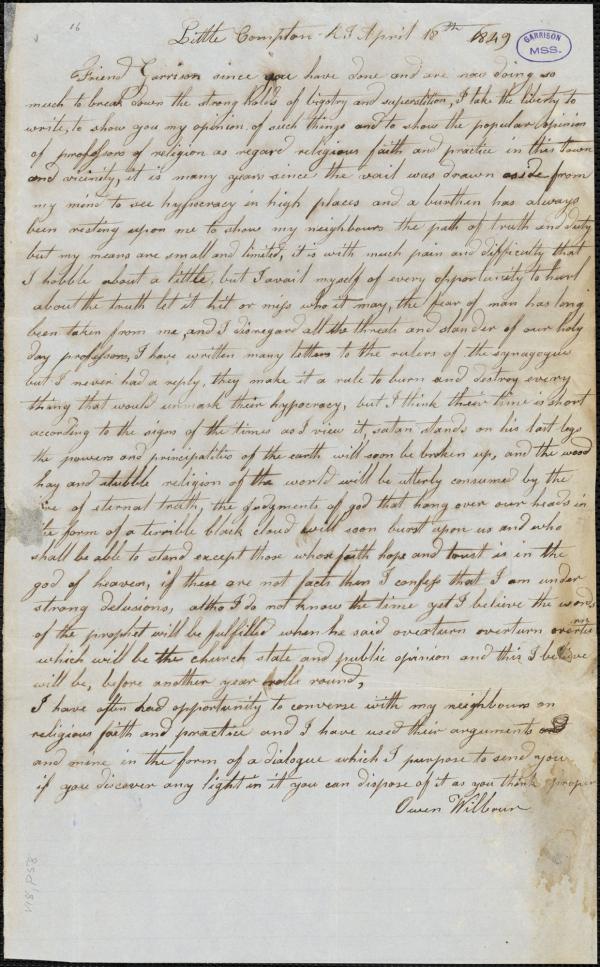 16
Little Compton R I April 18th 1849
GARRISON
MSS.
Friend Garrison since you have done and are now doing so
much to break down the strong holds of bigotry and superstition, I take the liberty to
write, to show you my opinion of such things and to show the popular opinion
of professors of religion as regard religious faith and practice in this town
and vicinity, it is many years since the vail was drawn aside from
my mind to see hypocracy in high places and a burthen has always
been resting upon me to show my neighbours the path of truth and duty
but my means are small and limited, it is with much pain and difficulty that
I hobble about a little, but I avail myself of every opportunity to hurl
about the truth let it hit or miss who it may, the fear of man has long
been taken from me, and I disregard all the threats and slander of our holy
day professors, I have written many letters to the rulers of the synagogue
but I never had a reply, they make it a rule to burn and destroy every
thing that would unmask their hypocracy, but I think their time is short
according to the signs of the times as I view it, satan stands on his last legs
the powers and principalities of the earth will soon be broken up, and the wood
hay and stubble religion of the world will be utterly consumed by the
fire of eternal truth, the judgments of god that hang over our heads in
the form of a terrible black cloud will soon burst upon us and who
shall be able to stand except those whose faith hope and trust is in the
god of heaven, if these are not facts then I confess that I am under
strong delusions, altho I do not know the time yet I believe the words
of the prophet will be fulfilled when he said overturn overturn overturn
which will be the church state and public opinion and this I believe
will be, before another year rolls round,
I have often had opportunity to converse with my neighbours on
religious faith and practice and I have used their arguments
and mine in the form of a dialogue which I purpose to send you
if you discover any light in it you can dispose of it as you think proper
Owen Wilbour